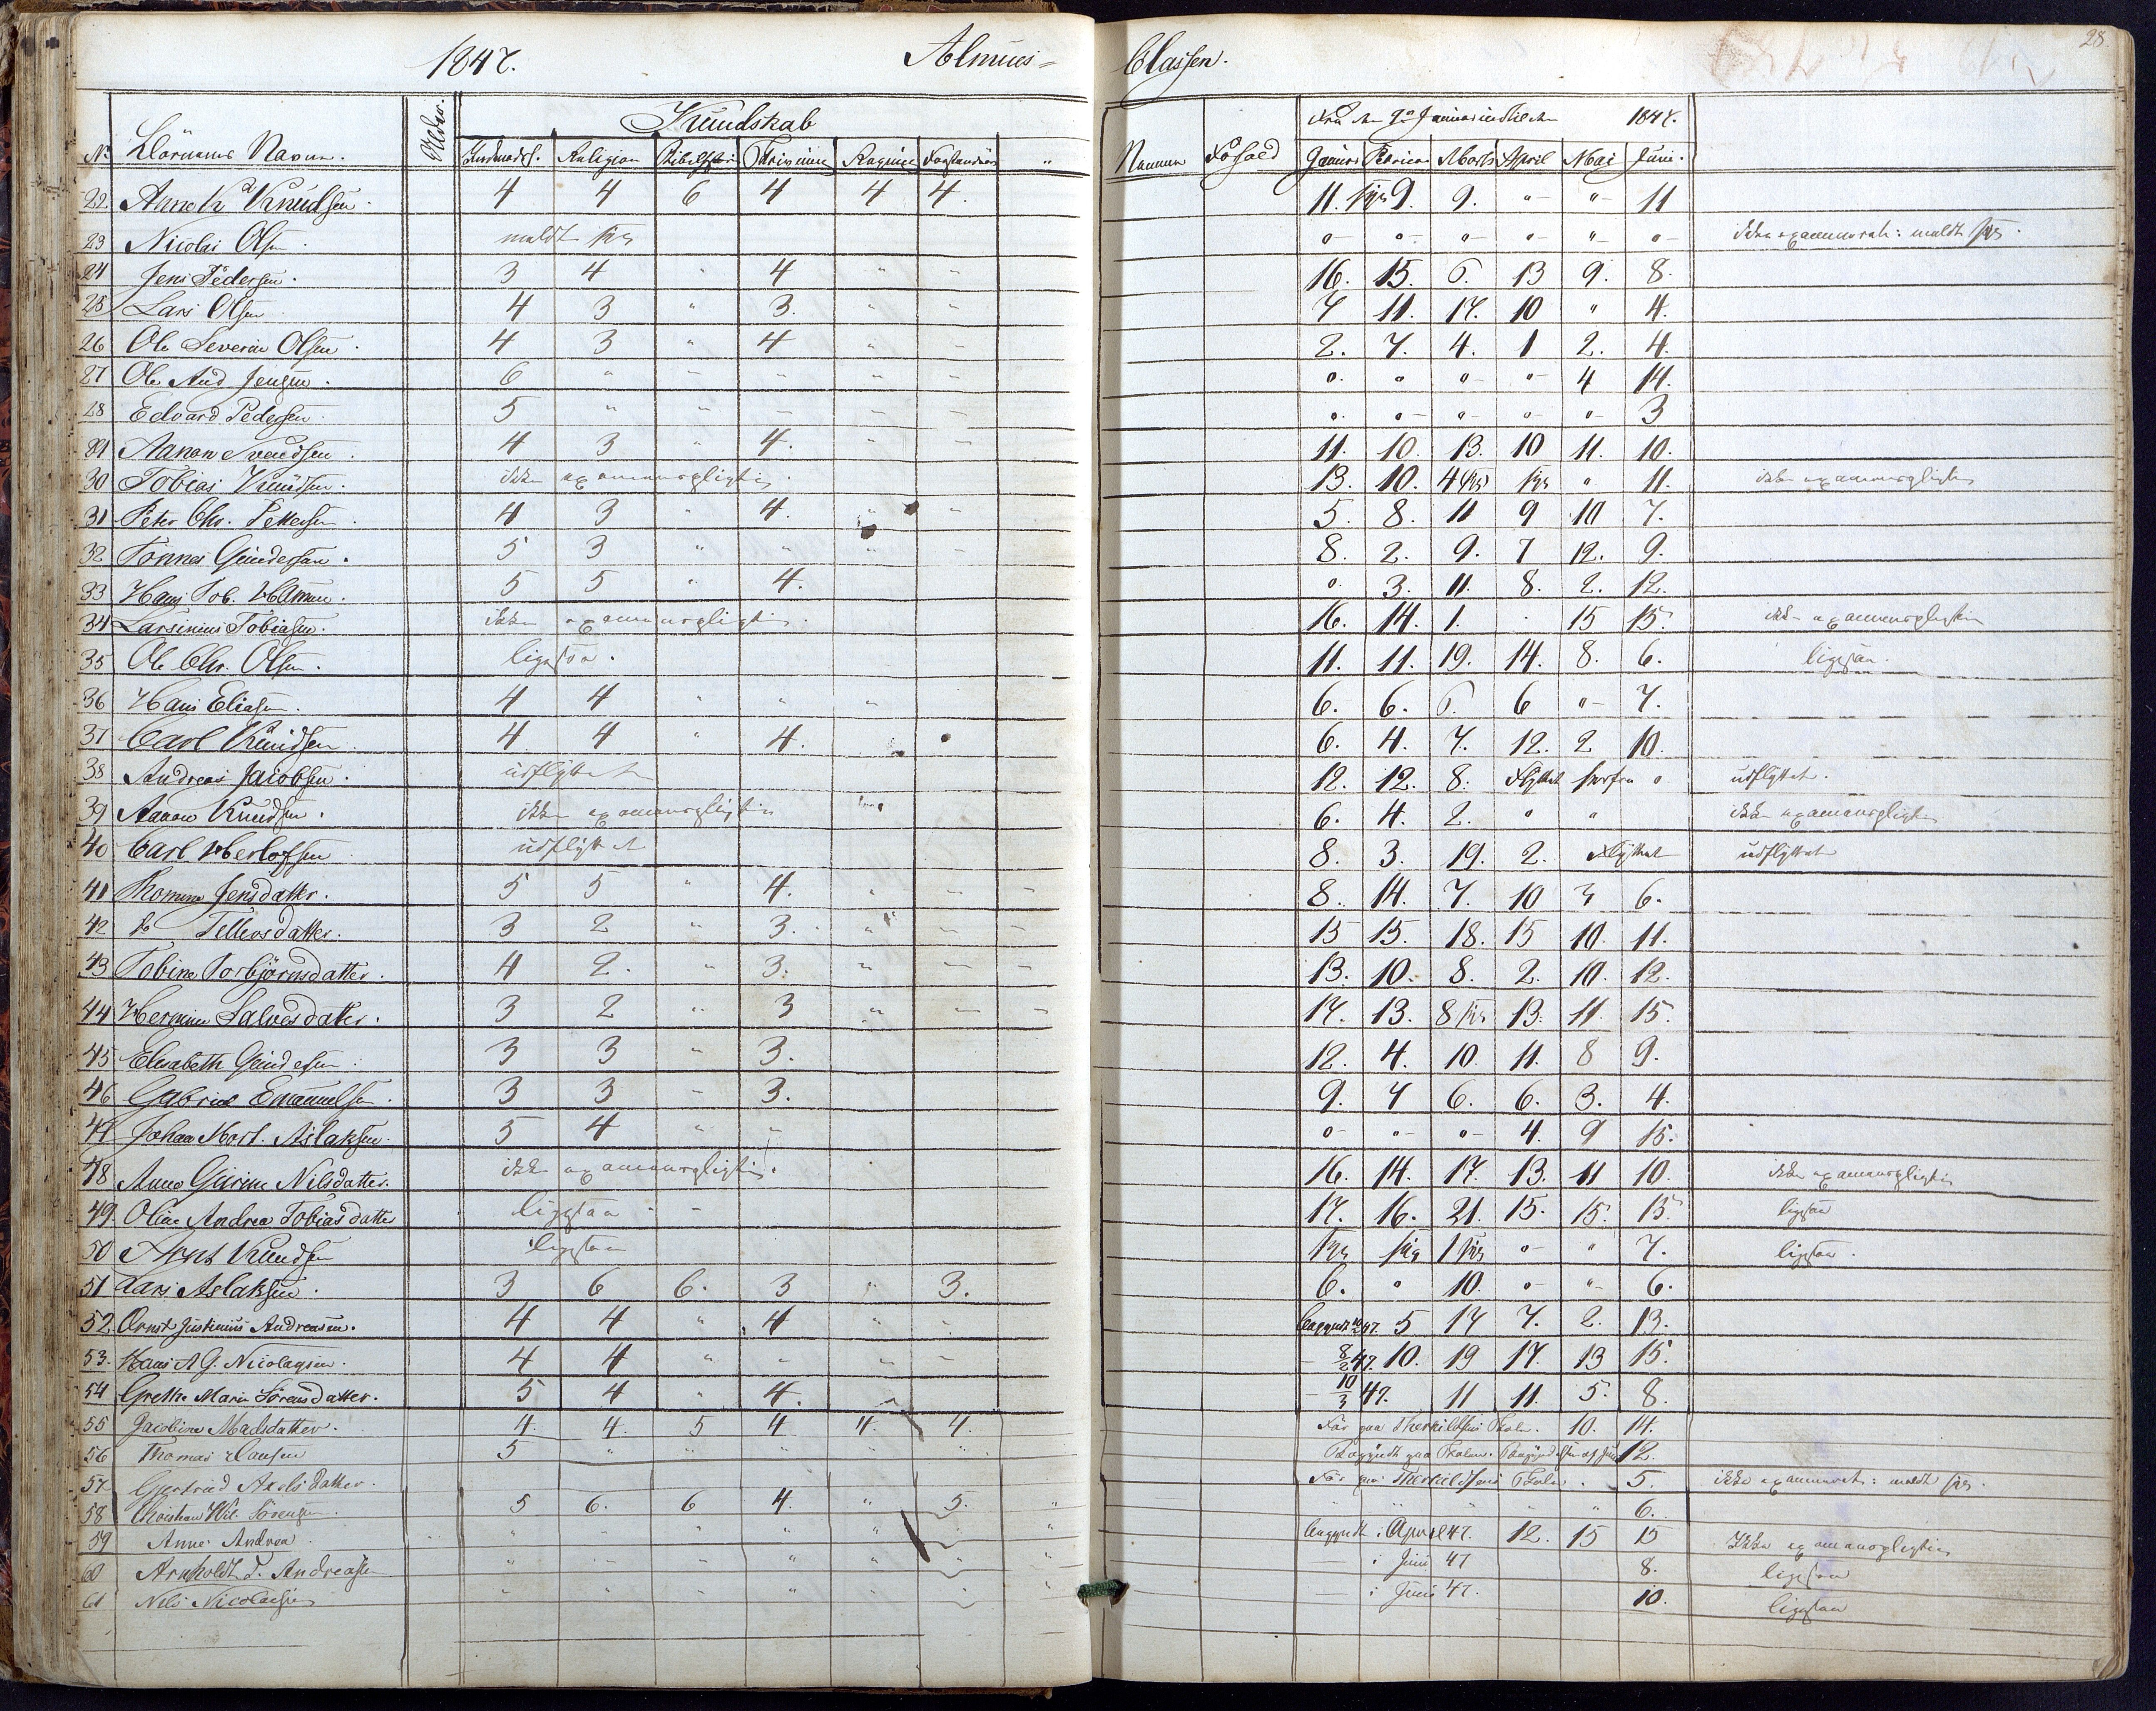 1847. Almues= Classen. 28.
No Börnenes Navne. Alder. Kundskab Navnene Forhold Fra den Januar indtil den 1847.
Indenadsl. Religion Bibelhist. Skrivning Regning Forstandsöv. " Januar Februar Marts April Mai Juni.
22 Knudsen 4 4 6 4 4 4. 11. syg 9. 9. " " 11
23 Nicolai Olsen. meldt syg " " " " " " ikke examineret: meldt syg.
24 Jens Pedersen. 3 4 " 4 " " 16. 15. 6. 13 9. 8.
25 Lars Olsen 4 3 " 3. " " 7 11. 17. 10 " 4.
26 Ole Severin Olsen. 4 3 " 4 " " 2. 7. 4. 1 2. 4.
27 Ole And Jensen. 6 " " " " " " " " " 4 14.
28 Edvard Pedersen. 5 " " " " " " " " " " 3
Aanon Svendsen. 4 3 " 4. " " 11. 10. 13. 10 11. 10.
30 Tobias Knudsen. ikke examenspligtig. 13. 10. 4 syg syg " 11. ikke examenspligtig
31 Peter Chr. Pettersen 4 3 " 4. " " 5. 8. 11 9 10 7.
32 Tönnes Gundersen. 5 3 " " " " 8. 2. 9. 7 12. 9.
33 Hans Tob. 5 5 " 4. " 3. 11. 8. 2. 12.
34 Larsinius Tobiasen. ikke examenspligtig. 16. 14. 1. . 15 15. ikke examenspligtig
35 Ole Chr. Olsen. ligesaa. 11. 11. 19. 14. 8. 6. ligesaa.
36 Hans Eliasen. 4 4 " " " 6. 6. 6. 6 " 7.
37 Carl Knudsen 4 4 " 4. 6. 4. 7. 12. 2 10.
38 Andreas Jacobsen. udflyttet 12. 12. 8. flyttet herfra " udflyttet.
39 Aanon Knudsen. ikke examenspligtig 6. 4. 2. " " ikke examenspligtig
40 Carl Herlofsen udflyttet 8. 3. 19. 2. flyttet udflyttet
41 Thomine Jensdatter. 5 5 " 4. " " " 8. 14. 7. 10 3 6.
42 do Tellevsdatter. 3 2 " 3. " " " 15 15. 18. 15 10. 11.
43 Tobine Torbjörnsdatter. 4 2. " 3. " " " 13. 10. 8. 2. 10. 12.
44 Hermine Salvesdatter. 3 2 " 3 " " " 17. 13. 8 syg 13. 11. 15.
45 Elisabeth Gundersen. 3 3 " 3. 12. 4. 10. 11. 8 9.
46 Gabriel Emanuelsen. 3 3 " 3. 9. 7 6. 6. 3. 4.
47 Johan Mort. Aslaksen. 5 4 " " " " " 4. 9 15.
48 Anne Gurine Nilsdatter. ikke examenspligtig. 16. 14. 17. 13. 11 10. ikke examenspligtig
49. Oline Andrea Tobiasdatter ligesaa 17. 16. 21. 15. 15. 15. ligesaa
50 Knudsen ligesaa syg syg 1 syg " " 7. ligesaa.
51 Lars Aslaksen. 3 6 6. 3 " 3. 6. " 10. " " 6.
52 Justinius Andreasen. 4 4 " 4 " " begyndt 47. 5 17 7. 2. 13.
53. Hans A G. Nicolaysen. 4 4 " " " " 8/2 47. 10. 19 17. 13 15.
54 Grethe Marie Sörensdatter. 5 4 " 4. " 10/3 47. 11 11. 5. 8.
55 Jacobine Madsdatter. 4. 4. 5 4 4. 4. Før paa Therkildsens Skole. 10. 14.
56 Thomas Hansen 5 " " " " " Begyndt paa Skolen. 12.
57 Gertrud Axelsdatter. Før paa Therkildsens Skole. 5. ikke examineret: meldt syg.
58 Christian Wil. Sörensen. 5 6. 6 4. " 5. " " " " " " 6.
59 Anne Andrea. " " " " " " " begyndt i April 47. 12. 15 15 Ikke examenspligtig
60 Arnholdt T. Andreasen " " " " " " " i Juni 47 8. ligesaa
61 Nils Nicolaisen " " " " " " " i Juni 47. 10. ligesaa